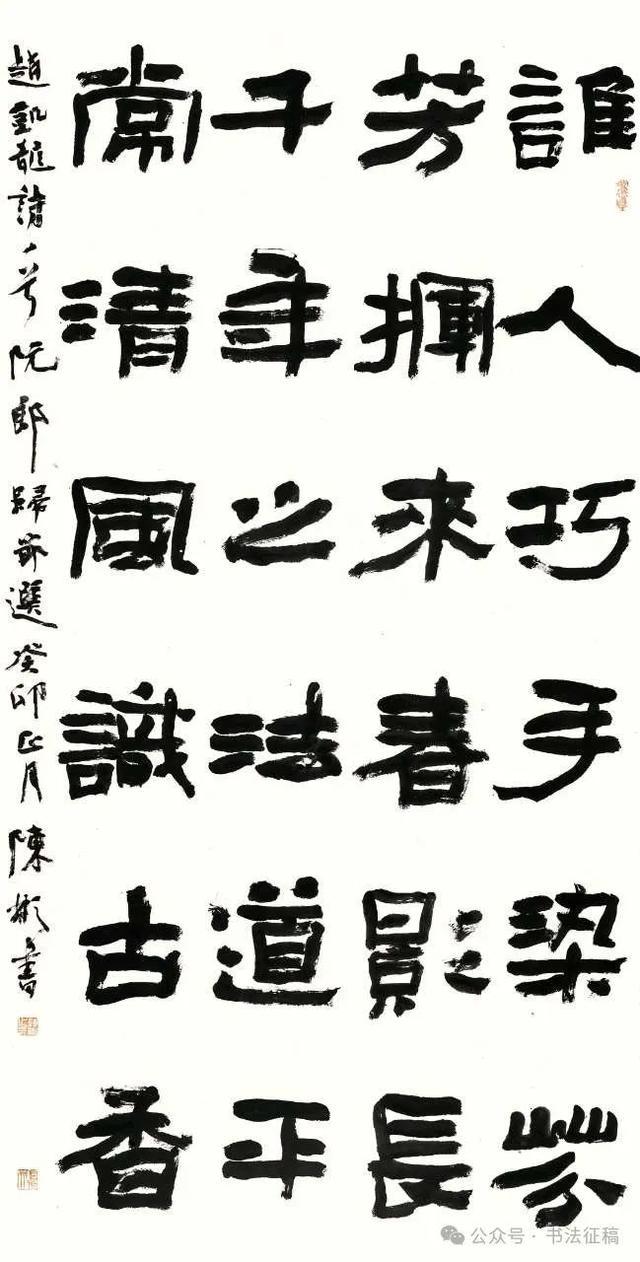 誰人巧手染芬
芳揮來春影長
千年之法道平
常清風識古香
趙凱龍 阮郎歸節選癸卯正月陳彬書
公众号 · 书法征稿